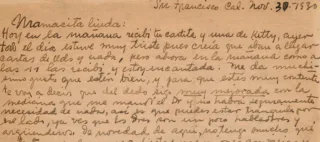 San Francisco Cal. Nov. 30 - 1930
Mamacita linda:
Hoy en la mañana recibí tu cartita y una de Kitty, ayer
todo el día estuve muy triste pues creía que iban a llegar
cartas de Uds y nada, pero ahora en la mañana como a
las 10 las recibí y estoy encantada. Me da mucho
gusto que estén bien, y para que estés muy contenta
te voy a decir que del dedo sigo muy mejorada con la
medicina que me mandó el Dr y no habrá seguramente
necesidad de nada, así es que puedes estar tranquila por
ese lado, ya ves que los Drs son un poco habladores y
argüenderos. De novedad de aquí, no tengo mucho que